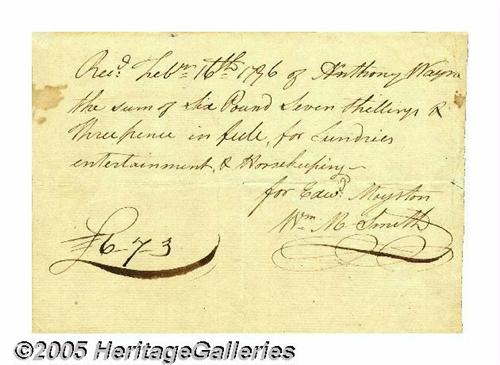 Rec.d Feb.ry 16th 1796 of Anthony Wayne
the sum of Six Pound Seven Shillings &
threepence in full, for Sundries
entertainment, & Horsekeeping—
for Edw.d Moyston
Wm. M Smith
£6-7-3
©2005 HeritageGalleries